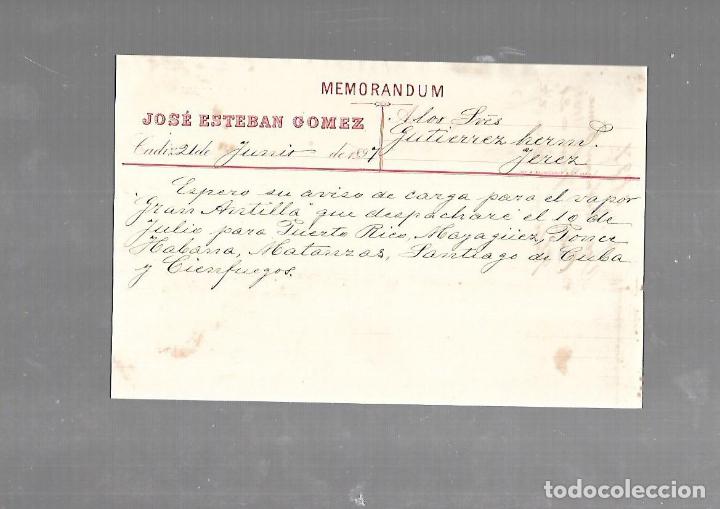 MEMORANDUM
JOSÉ ESTEBAN GOMEZ
Cadiz 21 de Junio de 1897
A los Sres
Gutierrez herm.
Jerez
Espero su aviso de carga para el vapor
"Gran Antilla" que despacharé el 10 de
Julio para Puerto Rico, Mayagüez, Ponce
Habana, Matanzas, Santiago de Cuba
y Cienfuegos.
todocoleccion.net